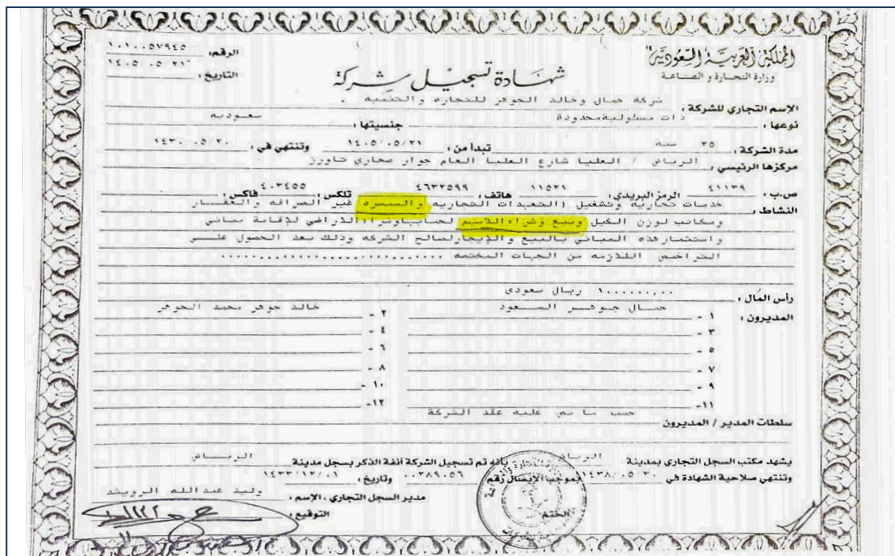 المملكة العربية السعودية
وزارة التجارة و الصناعة
شهادة تسجيل شركة
الرقم: ١٠١٠٠٥٧٩٤٥
التاريخ: ١٤٠٥/٠٥/٢١
الإسم التجاري للشركة: شركة جمال وخالد الجوهر للتجاره والتنميه .
نوعها: ذات مسئولية محدودة جنسيتها: سعوديه
مدة الشركة: ٢٥ سنه تبدأ من: ١٤٠٥/٠٥/٢١ وتنتهي في: ١٤٣٠/٠٥/٢٠
مركزها الرئيسي: الرياض / العليا شارع العليا العام جوار صحاري تاورز
ص.ب: ٤١١٣٩ الرمز البريدي: ١١٥٢١ هاتف: ٤٦٣٢٥٩٩ تلكس: ٤٠٣٤٥٥ فاكس:
النشاط: خدمات تجارية وتشغيل (التعهدات التجاريه والسمسره غير الصرافه والعقار
ومكاتب لوزن الكيل وبيع وشراء الاسهم لحسابها وشراء الاراضي لإقامة مباني
واستثمار هذه المباني بالبيع والإيجار لصالح الشركه وذلك بعد الحصول على
التراخيص اللازمه من الجهات المختصه
رأس المال: ١٠٠٠٠٠٠,٠٠ ريال سعودي
المديرون: ١- جمال جوهر السعود ٢- خالد جوهر محمد الجوهر
٣- ٤-
٥- ٦-
٧- ٨-
٩- ١٠-
١١- ١٢-
سلطات المدير / المديرون حسب ما نص عليه عقد الشركة
يشهد مكتب السجل التجاري بمدينة الرياض بأنه تم تسجيل الشركة آنفة الذكر بسجل مدينة الرياض
وتنتهي صلاحية الشهادة في ١٤٣٨/٠٥/٢٠ بموجب الإيصال رقم ٠٠٢٨٩٠٥٦ وتاريخ: ١٤٣٣/١٢/٠١
مدير السجل التجاري: الإسم: وليد عبدالله الرويشد
الختم التوقيع: